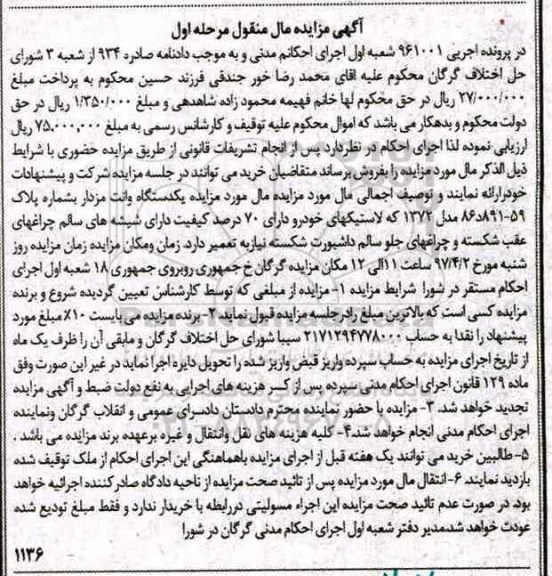 آگهی مزایده مال منقول مرحله اول
در پرونده اجریی ۹۶۱۰۰۱ شعبه اول اجرای احکانم مدنی و به موجب دادنامه صادره ۹۳۴ از شعبه ۳ شورای
حل اختلاف گرگان محکوم علیه اقای محمد رضا خور جندقی فرزند حسین محکوم به پرداخت مبلغ
۲۷/۰۰۰/۰۰۰ ریال در حق محکوم لها خانم فهیمه محمود زاده شاهدهی و مبلغ ۱/۳۵۰/۰۰۰ ریال در حق
دولت محکوم و بدهکار می باشد که اموال محکوم علیه توقیف و کارشانس رسمی به مبلغ ۷۵,۰۰۰,۰۰۰ ریال
ارزیابی نموده لذا اجرای احکام در نظردارد پس از انجام تشریفات قانونی از طریق مزایده حضوری با شرایط
ذیل الذکر مال مورد مزایده را بفروش برساند متقاضیان خرید می توانند در جلسه مزایده شرکت و پیشنهادات
خودرارائه نمایند و توصیف اجمالی مال مورد مزایده مال مورد مزایده یکدستگاه وانت مزدار بشماره پلاک
۵۹-۸۹۱د۸۶ مدل ۱۳۷۲ که لاستیکهای خودرو دارای ۷۰ درصد کیفیت دارای شیشه های سالم چراغهای
عقب شکسته و چراغهای جلو سالم داشبورت شکسته نیازبه تعمیر دارد. زمان ومکان مزایده زمان مزایده روز
شنبه مورخ ۹۷/۴/۲ ساعت ۱۱الی ۱۲ مکان مزایده گرگان خ جمهوری روبروی جمهوری ۱۸ شعبه اول اجرای
احکام مستقر در شورا شرایط مزایده ۱- مزایده از مبلغی که توسط کارشناس تعیین گردیده شروع و برنده
مزایده کسی است که بالاترین مبلغ رادرجلسه مزایده قبول نماید ۲- برنده مزایده می بایست ۱۰٪ مبلغ مورد
پیشنهاد را نقدا به حساب ۲۱۷۱۲۹۴۷۷۸۰۰۰ سیبا شورای حل اختلاف گرگان و مابقی آن را ظرف یک ماه
از تاریخ اجرای مزایده به حساب سپرده واریز قبض واریز شده را تحویل دایره اجرا نماید در غیر این صورت وفق
ماده ۱۲۹ قانون اجرای احکام مدنی سپرده پس از کسر هزینه های اجرایی به نفع دولت ضبط و آگهی مزایده
تجدید خواهد شد. ۳- مزایده با حضور نماینده محترم دادستان دادسرای عمومی و انقلاب گرگان ونماینده
اجرای احکام مدنی انجام خواهد شد.۴- کلیه هزینه های نقل وانتقال و غیره برعهده برند مزایده می باشد .
۵- طالبین خرید می توانند یک هفته قبل از اجرای مزایده باهماهنگی این اجرای احکام از ملک توقیف شده
بازدید نمایند. ۶- انتقال مال مورد مزایده پس از تائید صحت مزایده از ناحیه دادگاه صادر کننده اجرائیه خواهد
بود. در صورت عدم تائید صحت مزایده این اجراء مسولیتی دررابطه با خریدار ندارد و فقط مبلغ تودیع شده
عودت خواهد شد.مدیر دفتر شعبه اول اجرای احکام مدنی گرگان در شورا
۱۱۳۶